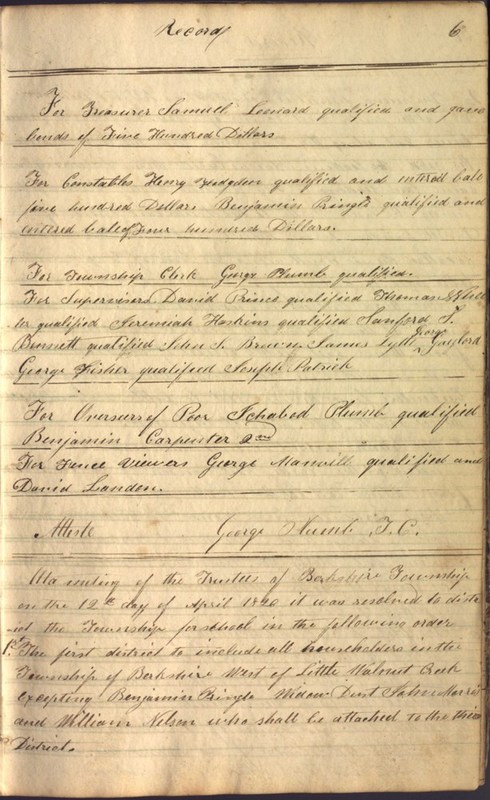 Record 6
For Treasurer Samuel Leonard qualified and gave
bonds of Five Hundred Dollars
For Constables Henry Hodgden qualified and entered bale
five hundred Dollars Benjamin Pringle qualified and
entered bale of four hundred Dollars.
For Township Clerk George Plumb qualified.
For Supervisors David Prince qualified Thomas
qualified Jeremiah Hoskins qualified Sanford S.
Bennett qualified John S. Brown James Lytle George Gaylord
George Fisher qualified Joseph Patrick
For Overseers of Poor Ichabod Plumb qualified
Benjamin Carpenter 2nd
For Fence Viewers George Manvill qualified and
David Landon.
Attest George Plumb T. C.
At a meeting of the Trustees of Berkshire Township
on the 12th day of April 1820 it was resolved to distr
ict the Township for school in the following order
1st The first district to include all householders in the
Township of Berkshire West of Little Walnut Creek
excepting Benjamin Pringle Widow Dent
and William Nelson who shall be attached to the third
District.